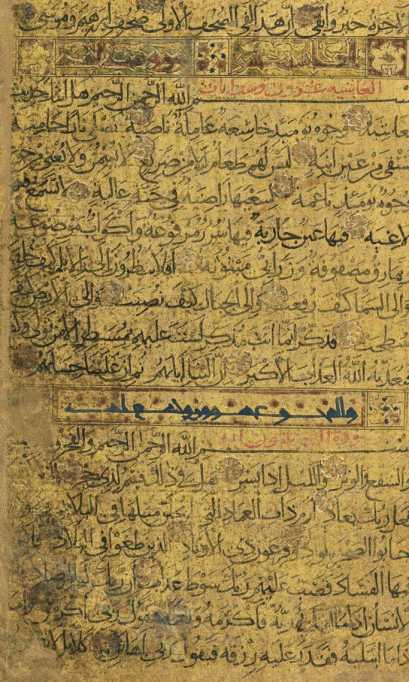 لاخرة خير وابقى ان هذا لفي الصحف الاولى صحف ابرهيم وموسى
الغاشيه عشرون وست ايات
الله الرحمن الرحيم هل اتاك حديث
الغاشية وجوه يومئذ خاشعة عاملة ناصبة تصلى نارا حامية
تسقى من عين انية ليس لهم طعام الا من ضريع لا يسمن ولا يغنى من جوع
وجوه يومئذ ناعمة لسعيها راضية في جنة عالية لا تسمع فيها
لاغية فيها عين جارية فيها سرر مرفوعة واكواب موضوعة
ونمارق مصفوفة وزرابى مبثوثة افلا ينظرون الى الابل كيف خلقت
والى السماء كيف رفعت والى الجبال كيف نصبت والى الارض كيف
سطحت فذكر انما انت مذكر لست عليهم بمصيطر الا من تولى وكفر
فيعذبه الله العذاب الاكبر ان الينا ايابهم ثم ان علينا حسابهم
الله الرحمن الرحيم والفجر
والشفع والوتر والليل اذا يسر هل في ذلك قسم لذى حجر
فعل ربك بعاد ارم ذات العماد التى لم يخلق مثلها في البلاد
جابوا الصخر بالواد وفرعون ذى الاوتاد الذين طغوا في البلاد
فيها الفساد فصب عليهم ربك سوط عذاب ان ربك لبالمرصاد
الانسان اذا ما ابتليه ربه فاكرمه ونعمه فيقول ربى اكرمن واما
اذا ما ابتليه فقدر عليه رزقه فيقول ربى اهانن كلا بل لا